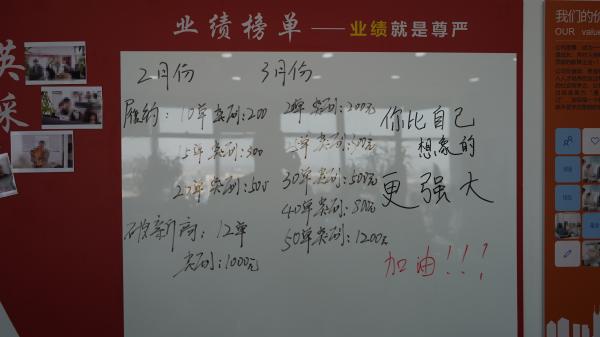 业绩榜单——业绩就是尊严
英
采
我们的价
OUR valu
2月份
履约：10单奖励：200
15单奖励：300
20单奖励：500
破新商：12单
奖励：1000元
3月份
20单奖励：200元
30单奖励：500元
40单奖励：800元
50单奖励：1200元
你比自己
想象的
更强大
加油！！！